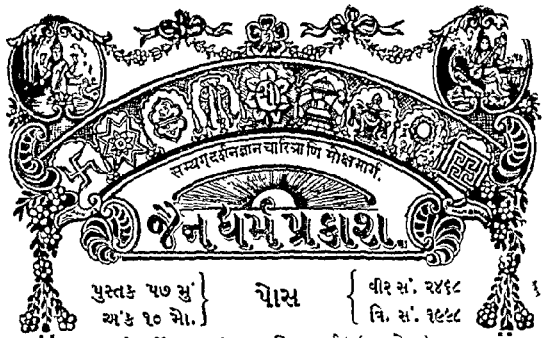 सम्यग्दर्शनज्ञानचारित्राणि मोक्षमार्ग.
જૈન ધર્મ પ્રકાશ.
પુસ્તક ૫૭ મું
અંક ૧૦ મો.
પોસ
વીર સં. ૨૪૬૮
વિ. સં. ૧૯૯૮